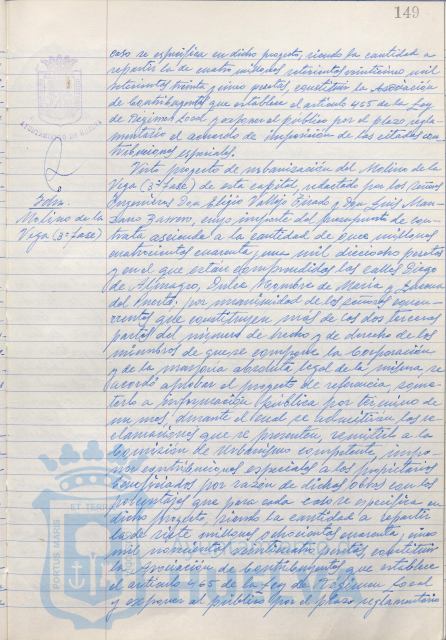 149
caso se especifica en dicho proyecto, siendo la cantidad a
repartir la de cuatro millones setecientas veinticinco mil
setecientas treinta y cinco pesetas, constituir la Asociación
de Contribuyentes que establece el artículo 465 de la Ley
de Régimen Local y exponer al público por el plazo regla-
mentario el acuerdo de imposición de las citadas con-
tribuciones especiales.
Visto proyecto de urbanización del Molino de la
Vega (3ª fase) de esta capital, redactado por los
Ingenieros Don Eligio Vallejo y Don Luis Man-
zano, cuyo importe del presupuesto de con-
trata asciende a la cantidad de once millones
cuatrocientas cuarenta y una mil dieciocho pesetas
y en el que están comprendidas las calles Diego
de Almagro, Dulce Nombre de María y Lucena
del Puerto: por unanimidad de los señores concu-
rrentes que constituyen más de las dos terceras
partes del número de hecho y de derecho de los
miembros de que se compone la Corporación
y de la mayoría absoluta legal de la misma, se
acordó aprobar el proyecto de referencia, some-
terlo a información pública por término de
un mes, durante el cual se admitirán las re-
clamaciones que se presenten, remitirlo a la
Comisión de Urbanismo competente, impo-
ner contribuciones especiales a los propietarios
beneficiados por razón de dichas obras con los
porcentajes que para cada caso se especifica en
dicho proyecto, siendo la cantidad a repartir
la de siete millones ochocientas cuarenta y cinco
mil novecientas veinticuatro pesetas, constituir
la Asociación de Contribuyentes que establece
el artículo 465 de la Ley de Régimen Local
y exponer al público por el plazo reglamentario
Molino de la
Vega (3ª fase)
AYUNTAMIENTO DE HUELVA
PORTUS MARIS
ET TERRAE